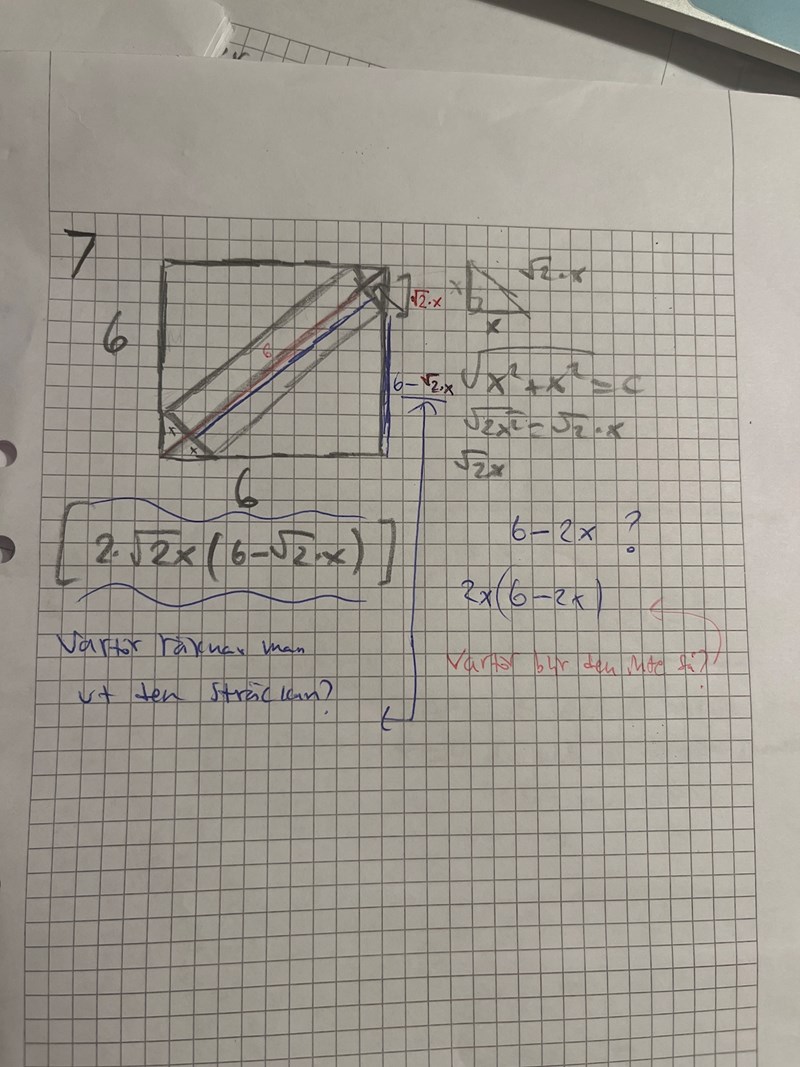 7
6
6
x
x
6
√2·x
6-√2·x
x
√2·x
x
√x²+x² = c
√2x² = √2·x
√2x
[2·√2x(6-√2·x)]
6-2x ?
2x(6-2x)
Varför räknar man
ut den sträckan?
Varför blir den inte så?